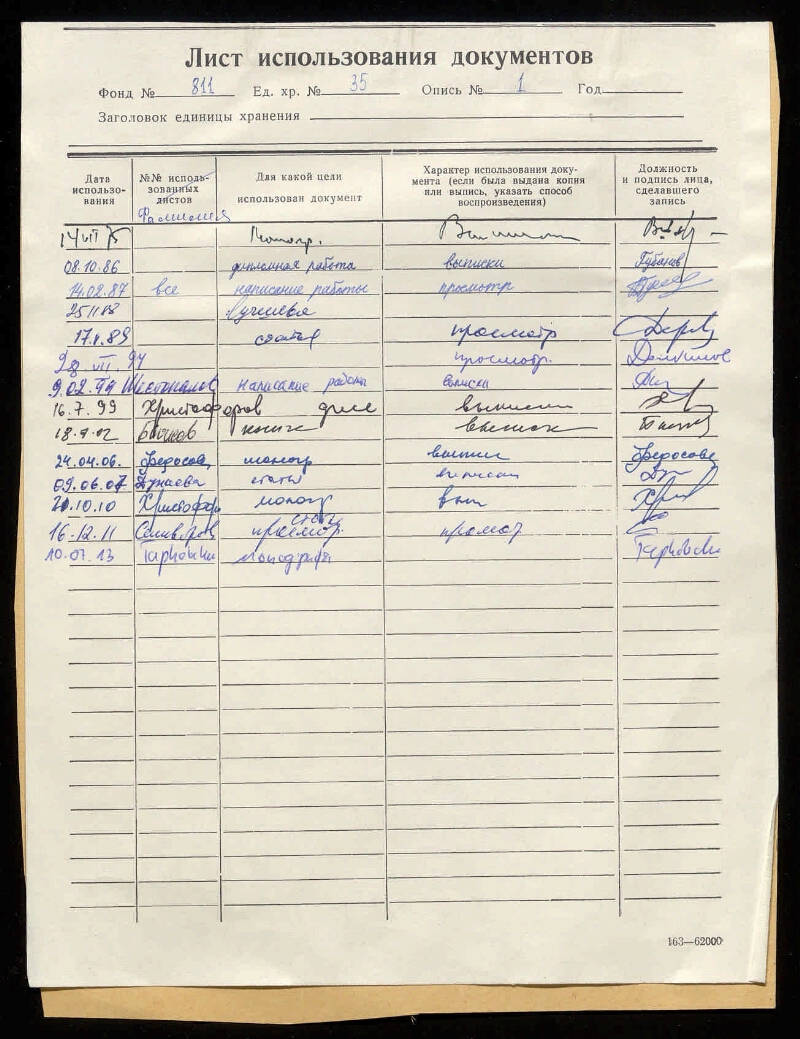 Лист использования документов
Фонд № 811 Ед. хр. № 35 Опись № 1 Год
Заголовок единицы хранения
Дата использования
№№ использованных листов
Фамилия
Для какой цели использован документ
Характер использования документа (если была выдана копия или выпись, указать способ воспроизведения)
Должность и подпись лица, сделавшего запись
14 VII 75 Моногр.
08.10.86 дипломная работа выписки Губанов
14.02.87 все написание работы просмотр
25 II 88
17.V.89 статья просмотр
28.VII.94 просмотр.
9.02. написание работы выписки
16.7.99 Христофоров дисс выписки
18.9.02 Бычков книга выписк
24.04.06. Федосова моногр выписки Федосова
09.06.07 Дунаева статья выписки
20.10.10 Христофор моногр вып
16.12.11 Селиверстов статья просмотр. просмотр
10.07.13 монография
163—62000